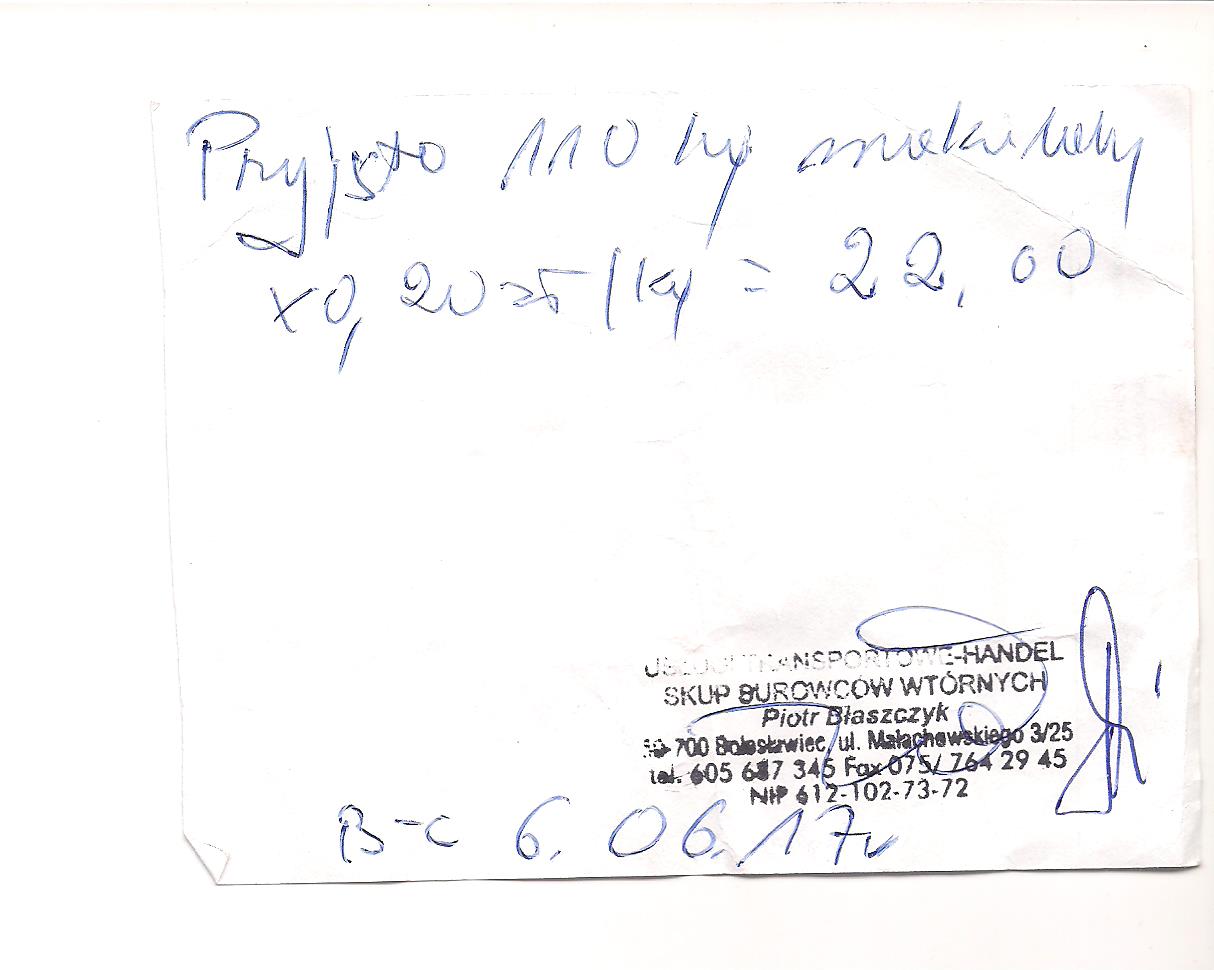 Przyjęto 110 kg makulatury
x0,20 zł/kg = 22,00
USŁUGI TRANSPORTOWE-HANDEL
SKUP SUROWCÓW WTÓRNYCH
Piotr Błaszczyk
59-700 Bolesławiec, ul. Małachowskiego 3/25
tel. 605 687 345 Fax 075/ 764 29 45
NIP 612-102-73-72
B-c 6.06.17r